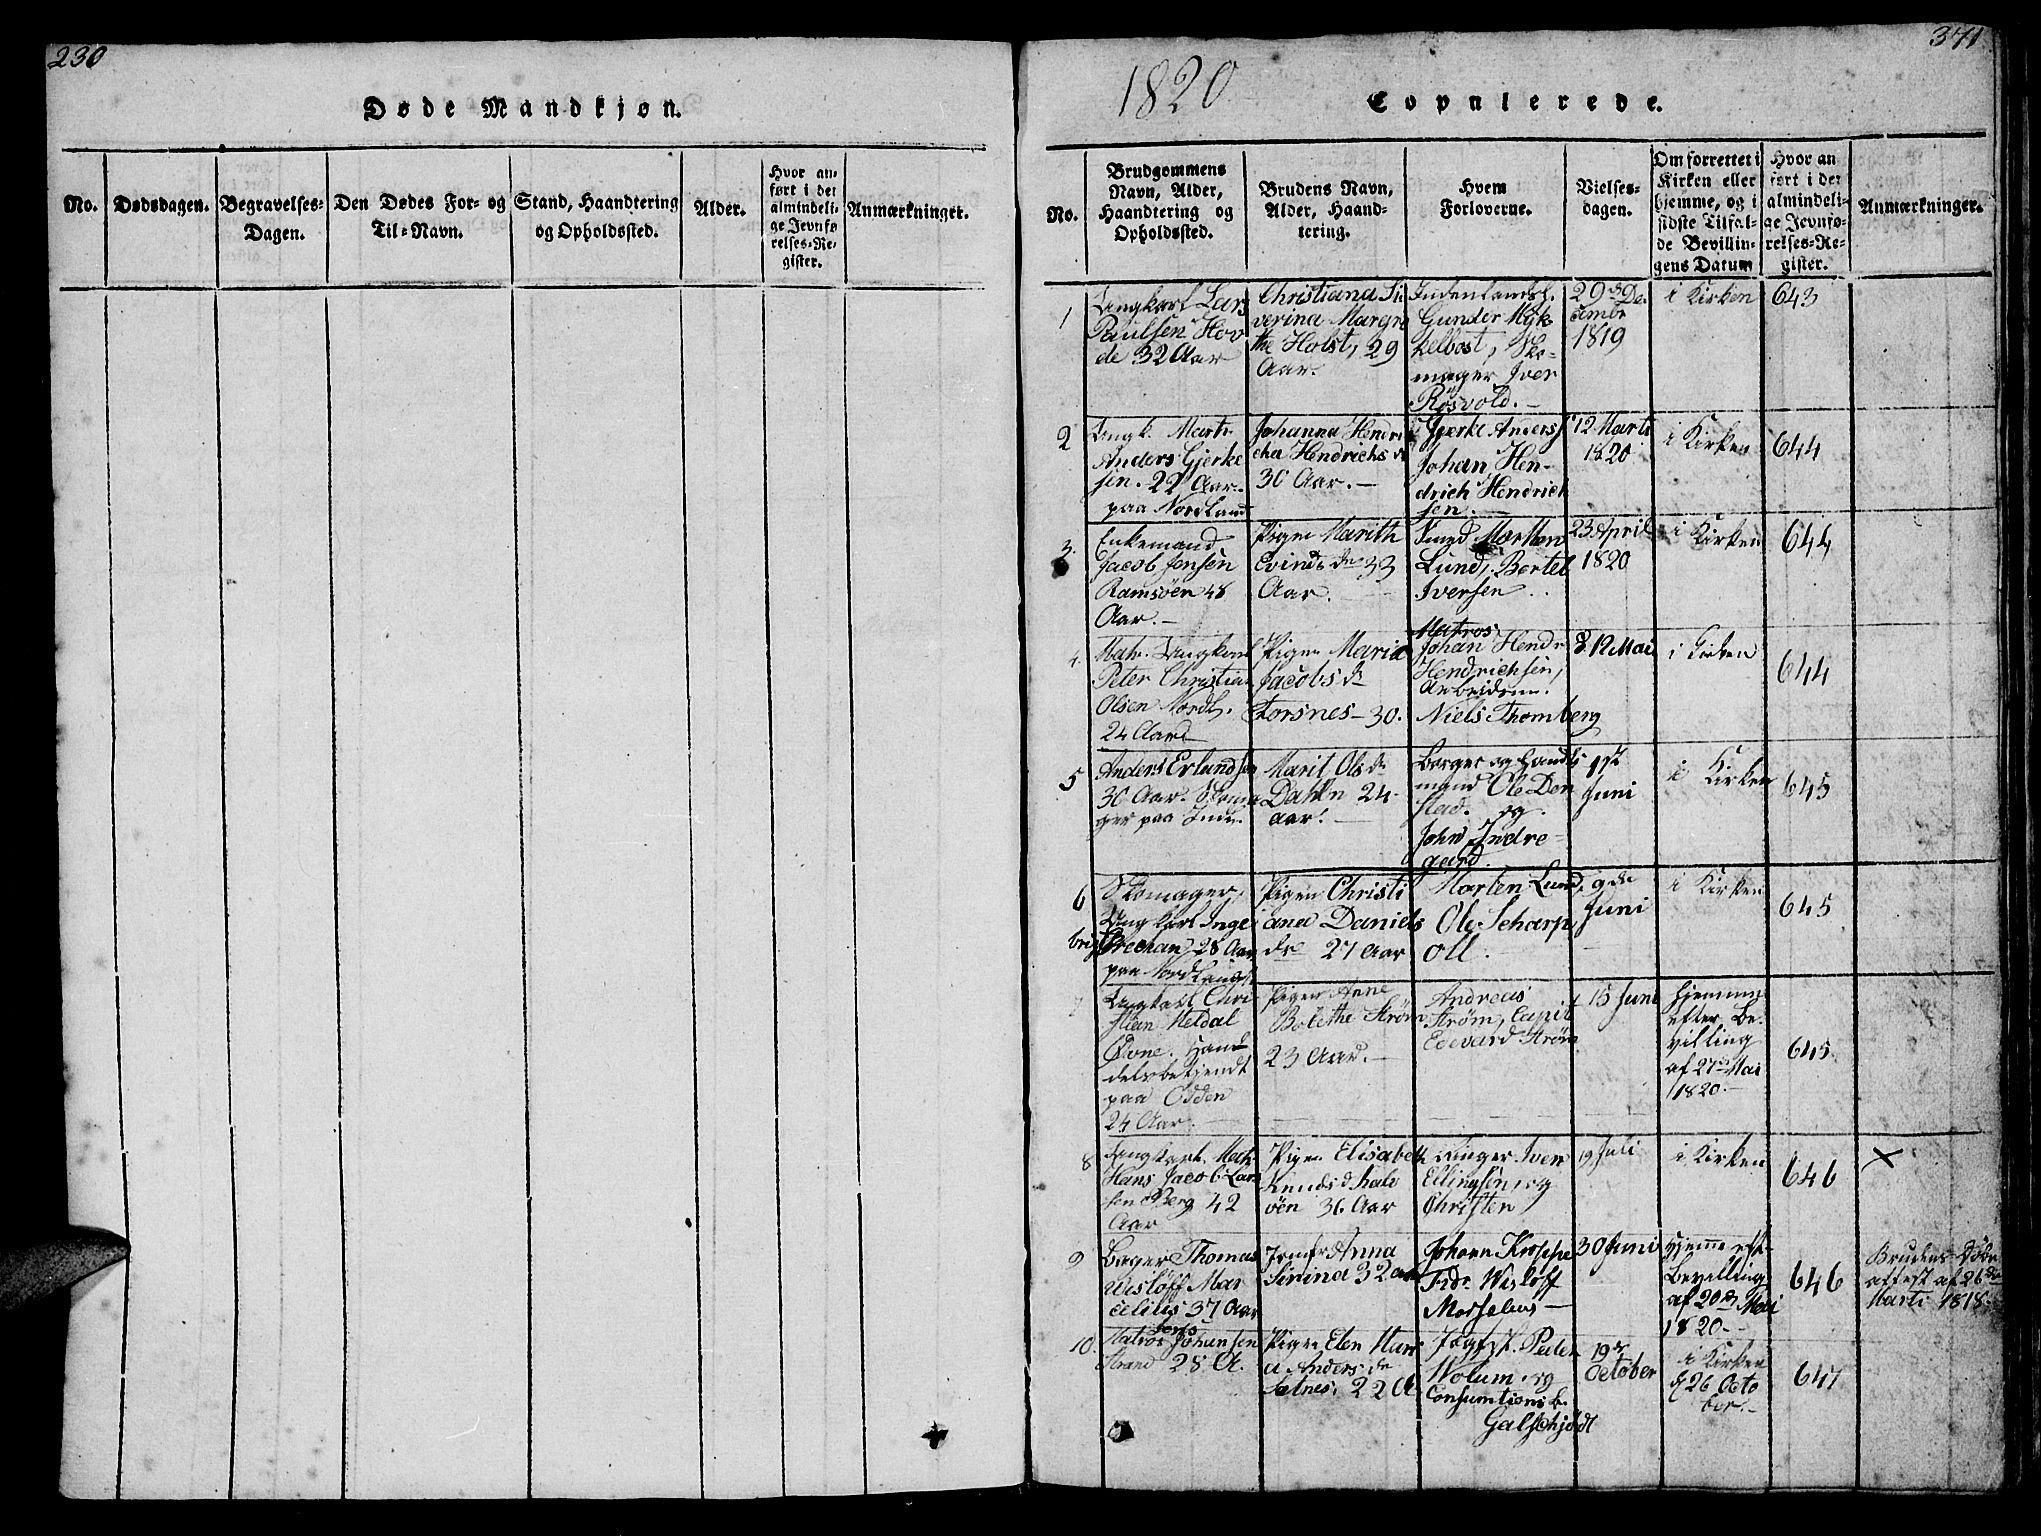 230
Døde Mandkjøn.
No.
Dødsdagen.
Begravelses-
Dagen.
Den Dødes For- og
Til-Navn.
Stand, Haandtering
og Opholdssted.
Alder.
Hvor an-
ført i det
almindeli-
ge Jevnfø-
relses-Re-
gister.
Anmærkninger.
371
1820
Copulerede.
No.
Brudgommens
Navn, Alder,
Haandtering og
Opholdssted.
Brudens Navn,
Alder, Haand-
tering.
Hvem
Forloverne.
Vielses-
dagen.
Om forrettet i
Kirken eller
hjemme, og i
sidste Tilfæl-
de Bevillin-
gens Datum
Hvor an
ført i det
almindeli-
ge Jevnfø-
relses-Re-
gister.
Anmærkninger.
1
Ungkarl Lars
Paulsen Hov
de 32 Aar
Christiana Si
verina Margre
the Holst, 29
Aar.
Gunder Myk-
kelbost, Sko-
mager Iver
Røsvold. -
29de De
cembr
1819
i Kirken
643
2
Ungk. Matr.
Anders Gjerke
sen. 22 Aar.
paa Nordland
Johanna Hendri
cha Hendrichs dr
30 Aar. -
Gjerke Anders
Johan Hen-
drich Hendrich
sen.
12 Marts
1820
i Kirken
644
3.
Enkemand
Jacob Jensen
Ramsöen 48
Aar. -
Pigen Marith
Evinds dr 33
Aar.
Morten
Lund, Bertel
Iversen
23 April
1820
i Kirken
644
4.
Matr. Ungkarl
Peter Christian
Olsen Nordl.
24 Aar
Pigen Maria
Jacobs dr
Torsnes - 30.
Matros
Johan Hendr
Hendrichsen,
Arbeidsm.
Niels Thomberg
d. 12 Mai
i Kirken
644
5
Anders Erlandsen
30 Aar. Skoma
ger paa
Marit Ols dr
Dahln 24
aar. -
Borger og Handls
mand Ole Den
stad. og
John Indre-
gaard
1ste
Juni
i Kirken
645
6
Skomager,
Ungkarl Inge
brigt Brechan 28 Aar
paa Nordlandet
Pigen Christi
ana Daniels
dr 27 Aar
Morten Lund,
Ole Scharp
oll.
9de
Juni
i Kirken
645
7
Ungkarl Chri
stian Meldal
Øvne. Han
delsbetjendt
paa Odden
24 Aar.
Pigen Anne
Bolethe Strøm
23 Aar. -
Andreas
Strøm, Capit
Edevard Strøm
15 Juni
hjemme
efter Be
villing
af 27de Mai
1820. -
645
8
Ungkarl. Matr.
Hans Jacob Lar
sen Berg 42
Aar
Pigen Elisabeth
Knuds d
öen 36 Aar
Iver
Ellingsen, og
Christen
19 Juli
i Kirken
646
x
9
Bager Thomas
Wisløff Mar
celius 37 Aar
Jomfr Anna
Sirina 32 aar
Johann Knoppe
Frdr Wisløff
Marselius -
30 Juni
Hjemme eft-
Bevilling
af 20de Mai
1820. -
646
Brudens Døbe
attest af 26de
Marti 1818.
10.
Matros Johansen
Strand 28 A.
Pigen Elen Mari
a Anders dr
22 A.
Peder
Wolum, og
Consumtions b.
Galschjødt
19de
October
i Kirken
d 26 Octo
ber. -
647